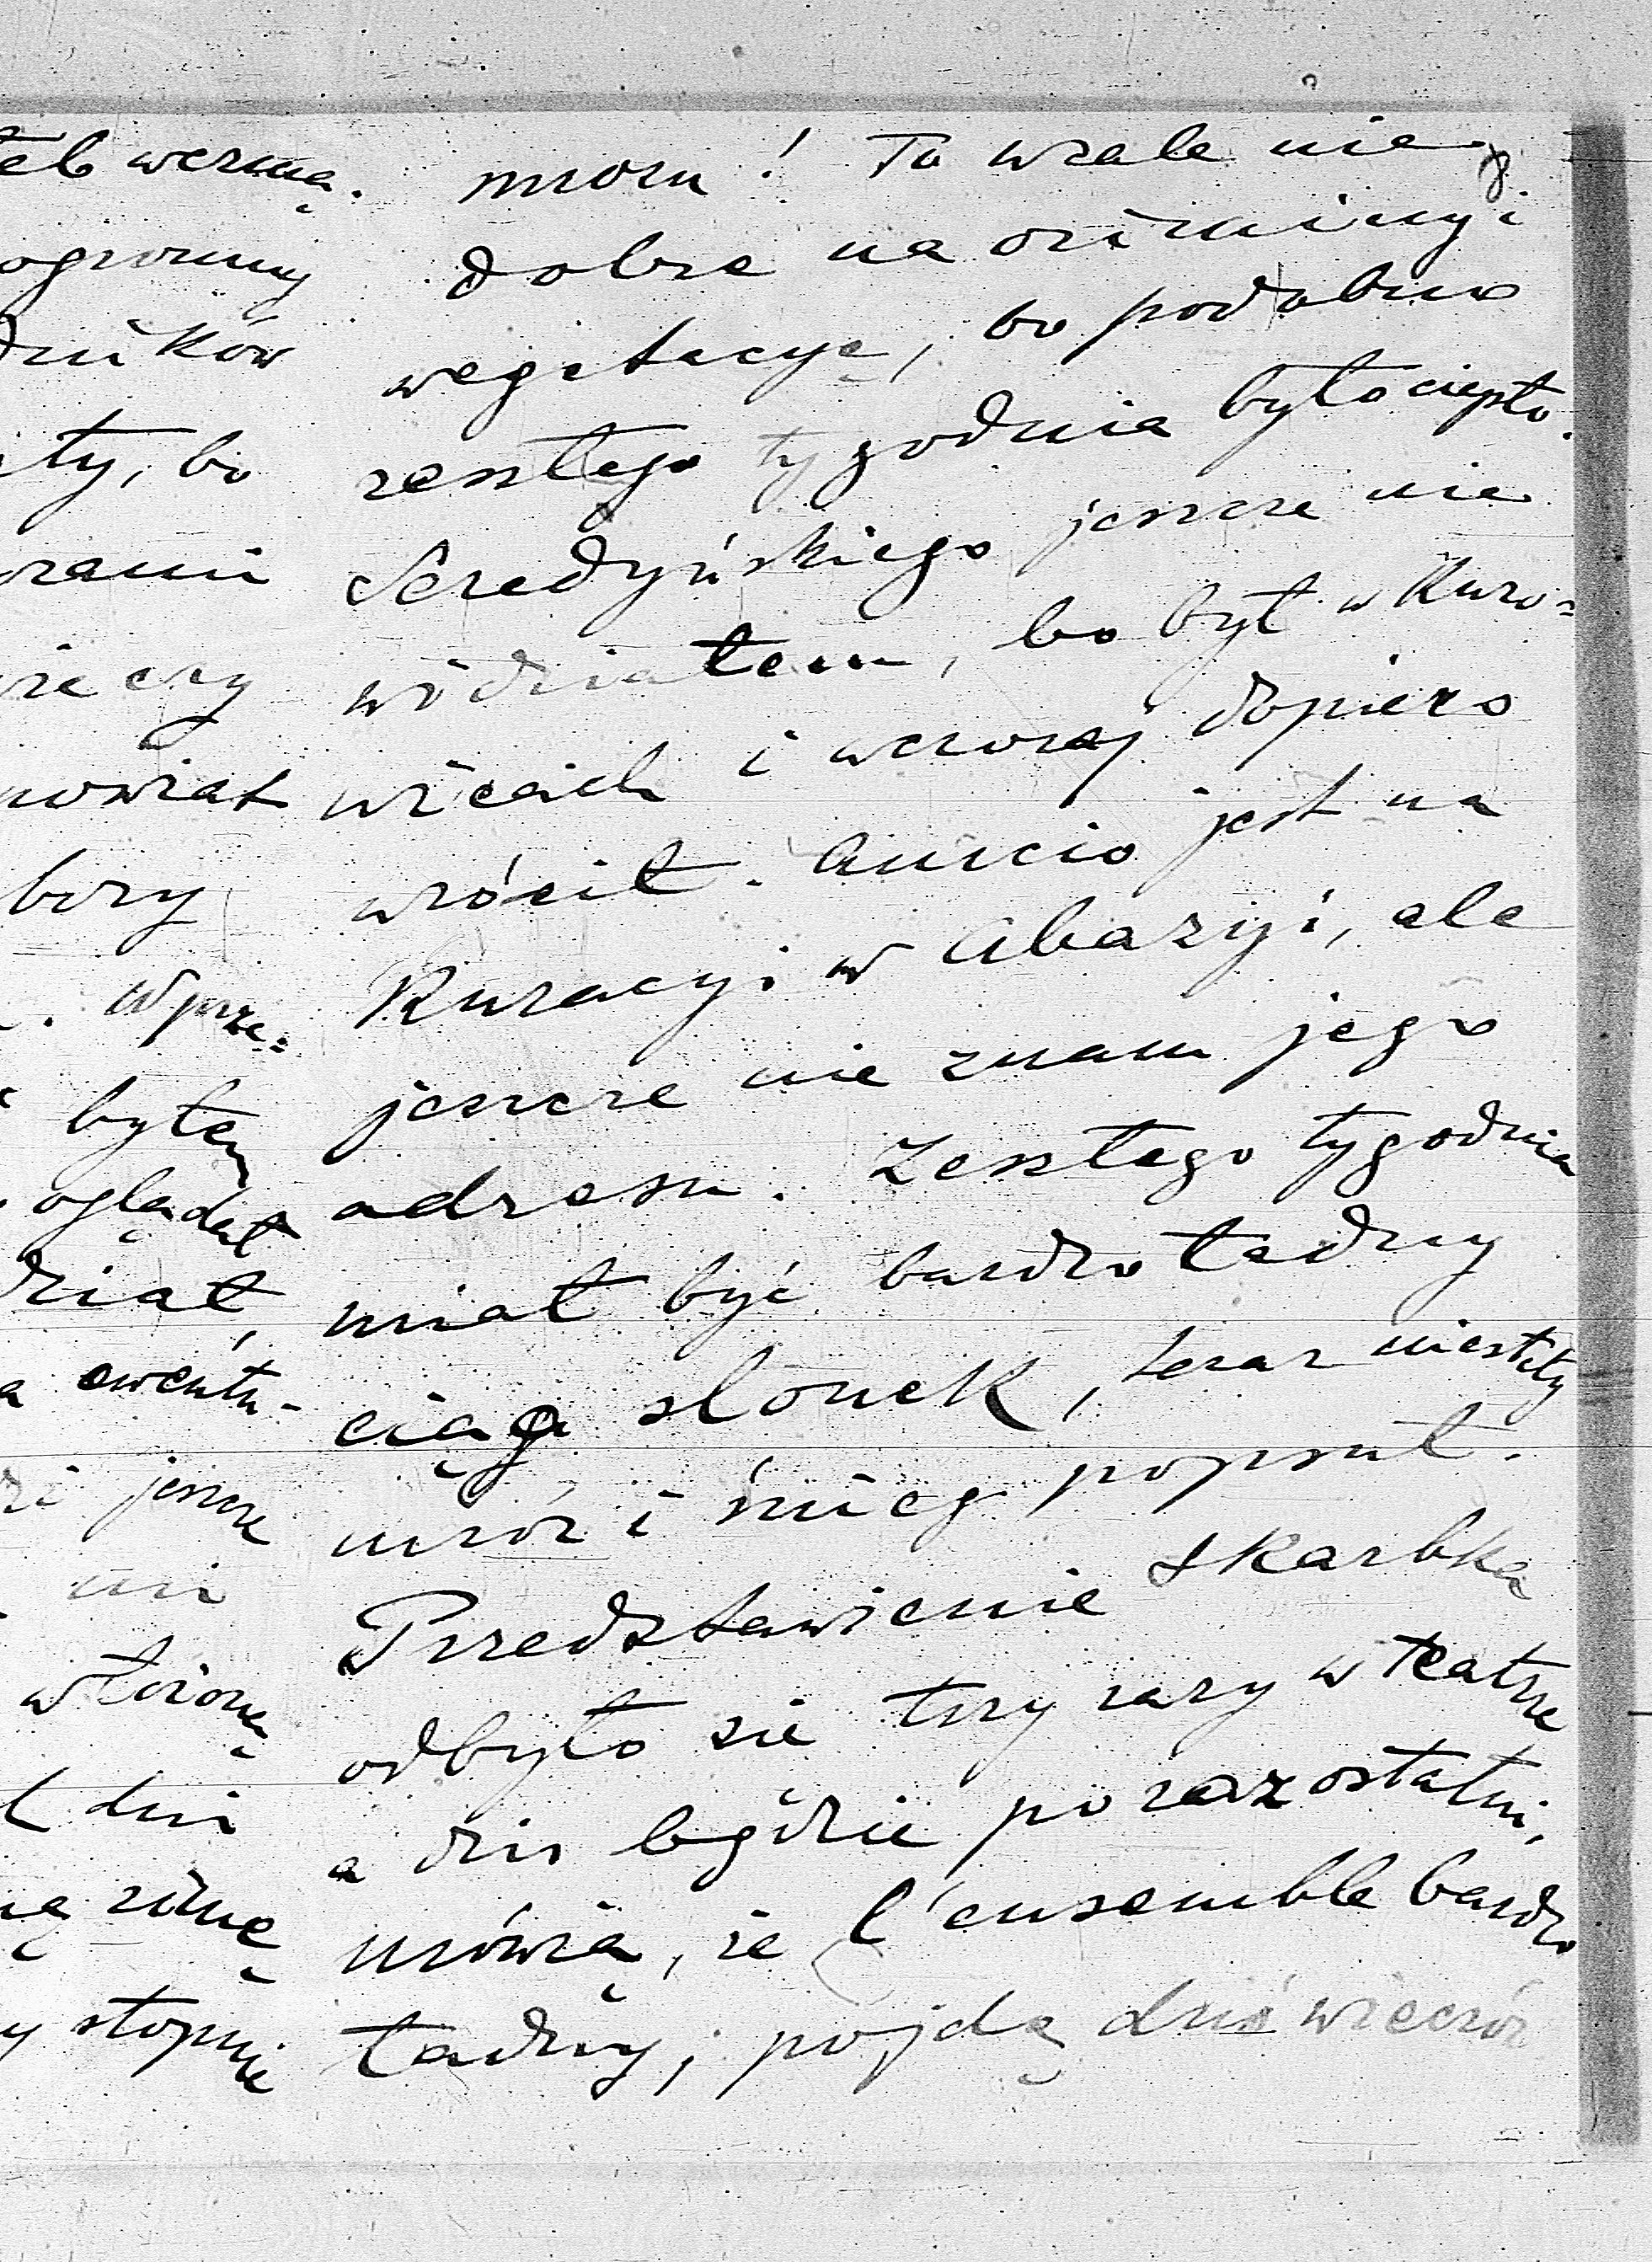 łeb wezmą.
ogromny
ików
ty, bo
rami
że czy
powiat
bory
. W prze=
byłem
oglądał
dział,
a ewentu-
jeszcze
mi
włożoną
dni
ą zimę
y stopnie
mrozu! To wcale nie
dobrze na oziminy i
wegetacyę, bo podobno
zeszłego tygodnia było ciepło.
Seredyńskiego jeszcze nie
widziałem, bo był w Kuro=
wicach i wczoraj dopiero
wrócił. Anucio jest na
Kuracyi w Abazyi, ale
jeszcze nie znam jego
adresu. Zeszłego tygodnia
miał być bardzo ładny
ciąg słonek, teraz niestety
mróz i śnieg popsuł.
Przedstawienie Skarbka
odbyło sie trzy razy w teatrze
a dziś będzie po raz ostatni,
mówią, że l'ensemble bardzo
ładny, pójdę dziś wieczór